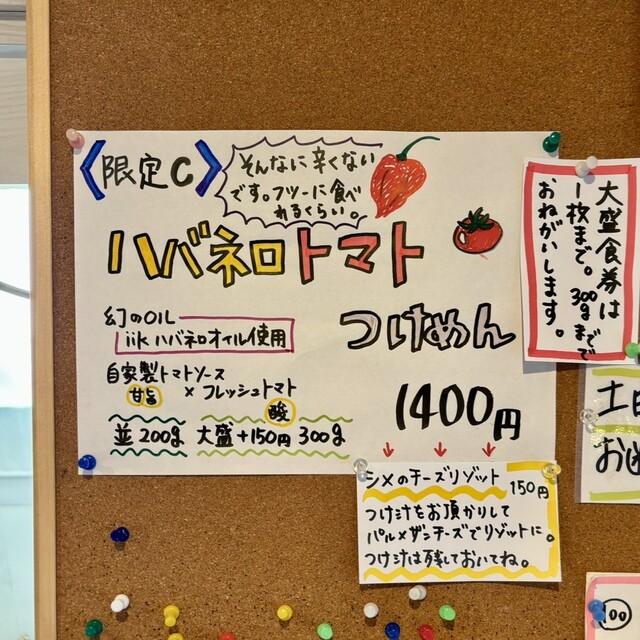 〈限定C〉
そんなに辛くない
です。フツーに食べ
れるくらい。
ハバネロトマト
つけめん
幻のOIL
iik ハバネロオイル使用
自家製トマトソース
×フレッシュトマト
甘旨
酸
並200g 大盛+150円 300g
1400円
↓ ↓ ↓
シメのチーズリゾット 150円
つけ汁をお預かりして
パルメザンチーズでリゾットに。
つけ汁は残しておいてね。
大盛食券は
1枚まで。300gまで
おねがいします。
土日
おめ
100